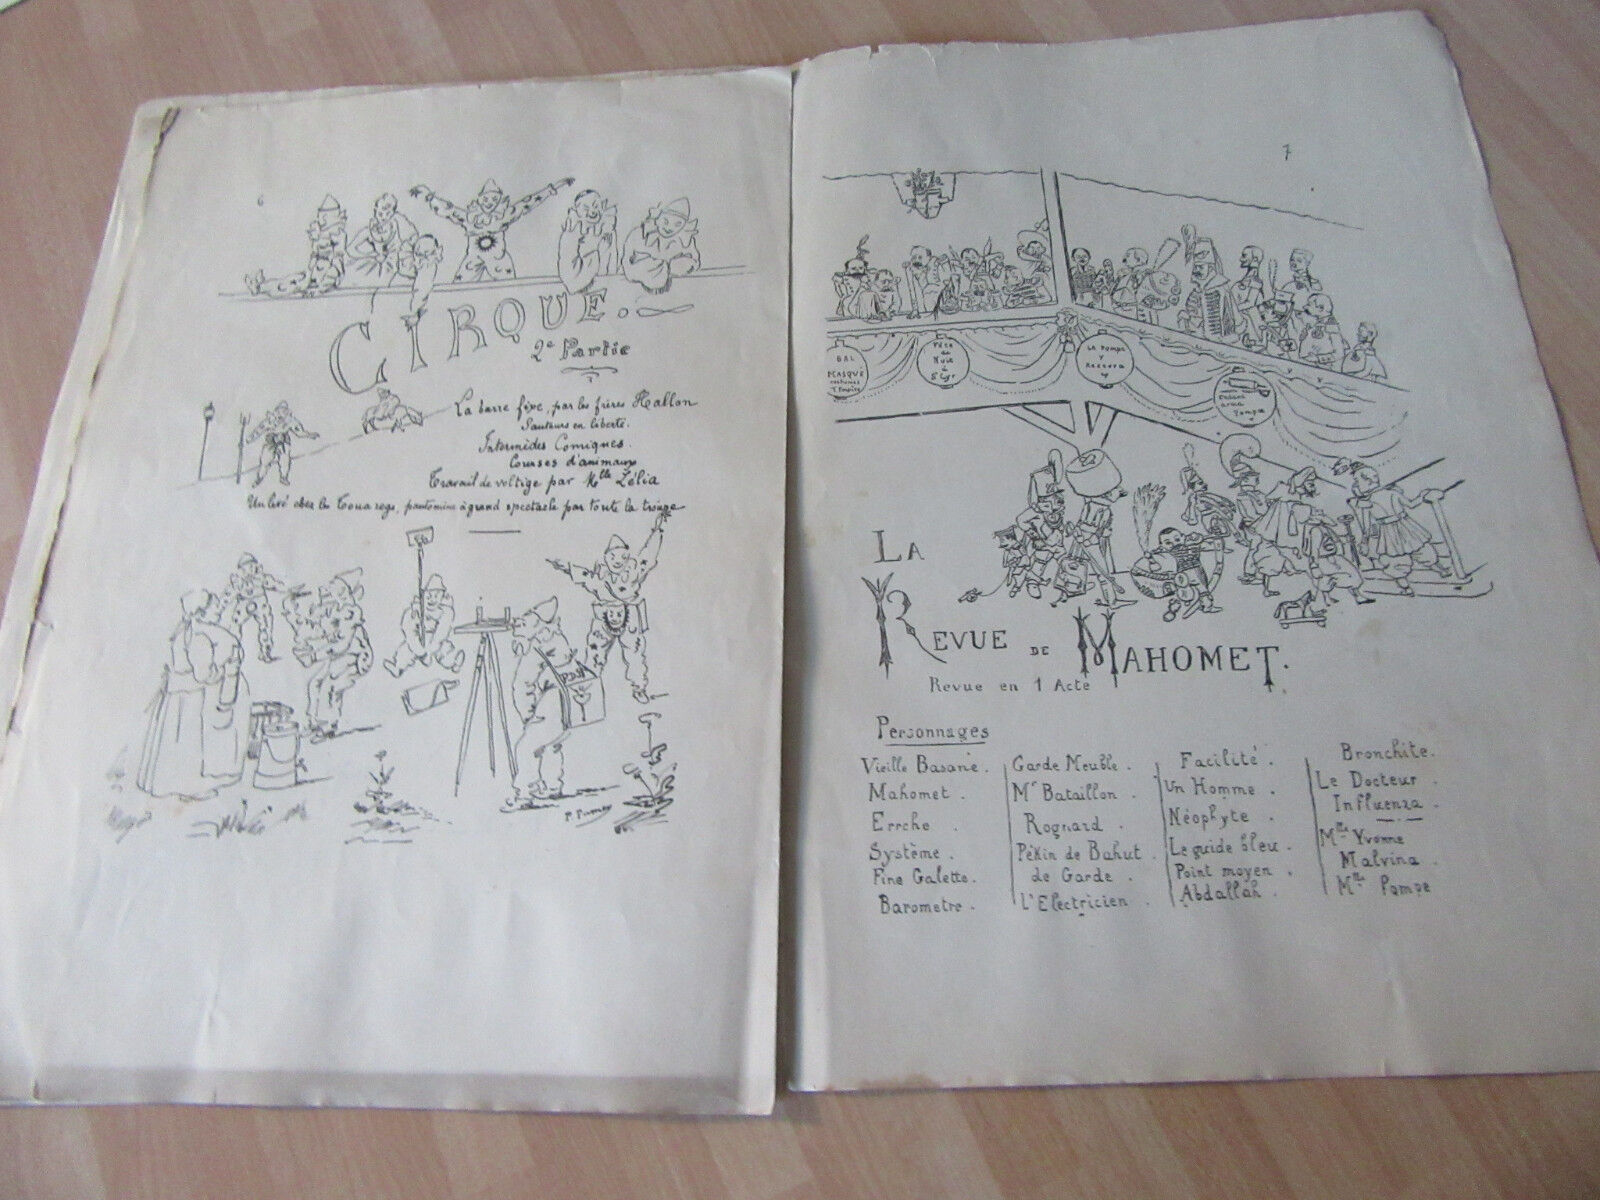 6
CIRQUE.
2e Partie
La barre fixe, par les frères Hallon
Sauteurs en liberté.
Intermèdes Comiques.
Courses d'animaux
Travail de voltige par Mlle Zélia
Un levé chez les Touaregs, pantomime à grand spectacle par toute la troupe
7
BAL
MASQUÉ
costumes
1 Empire
Fête
de
Nuit
à
St Cyr
La Pompe
y
Restera
LA
REVUE DE MAHOMET.
Revue en 1 Acte
Personnages
Vieille Basane.
Mahomet.
Errche.
Système.
Fine Galette.
Barometre.
Garde Meuble.
Mr Bataillon.
Rognard.
Pékin de Bahut
de Garde.
L'Electricien.
Facilité.
Un Homme.
Néophyte.
Le guide bleu.
Point moyen.
Abdallah.
Bronchite.
Le Docteur.
Influenza.
Mlle Yvonne
Malvina.
Mlle Pompe